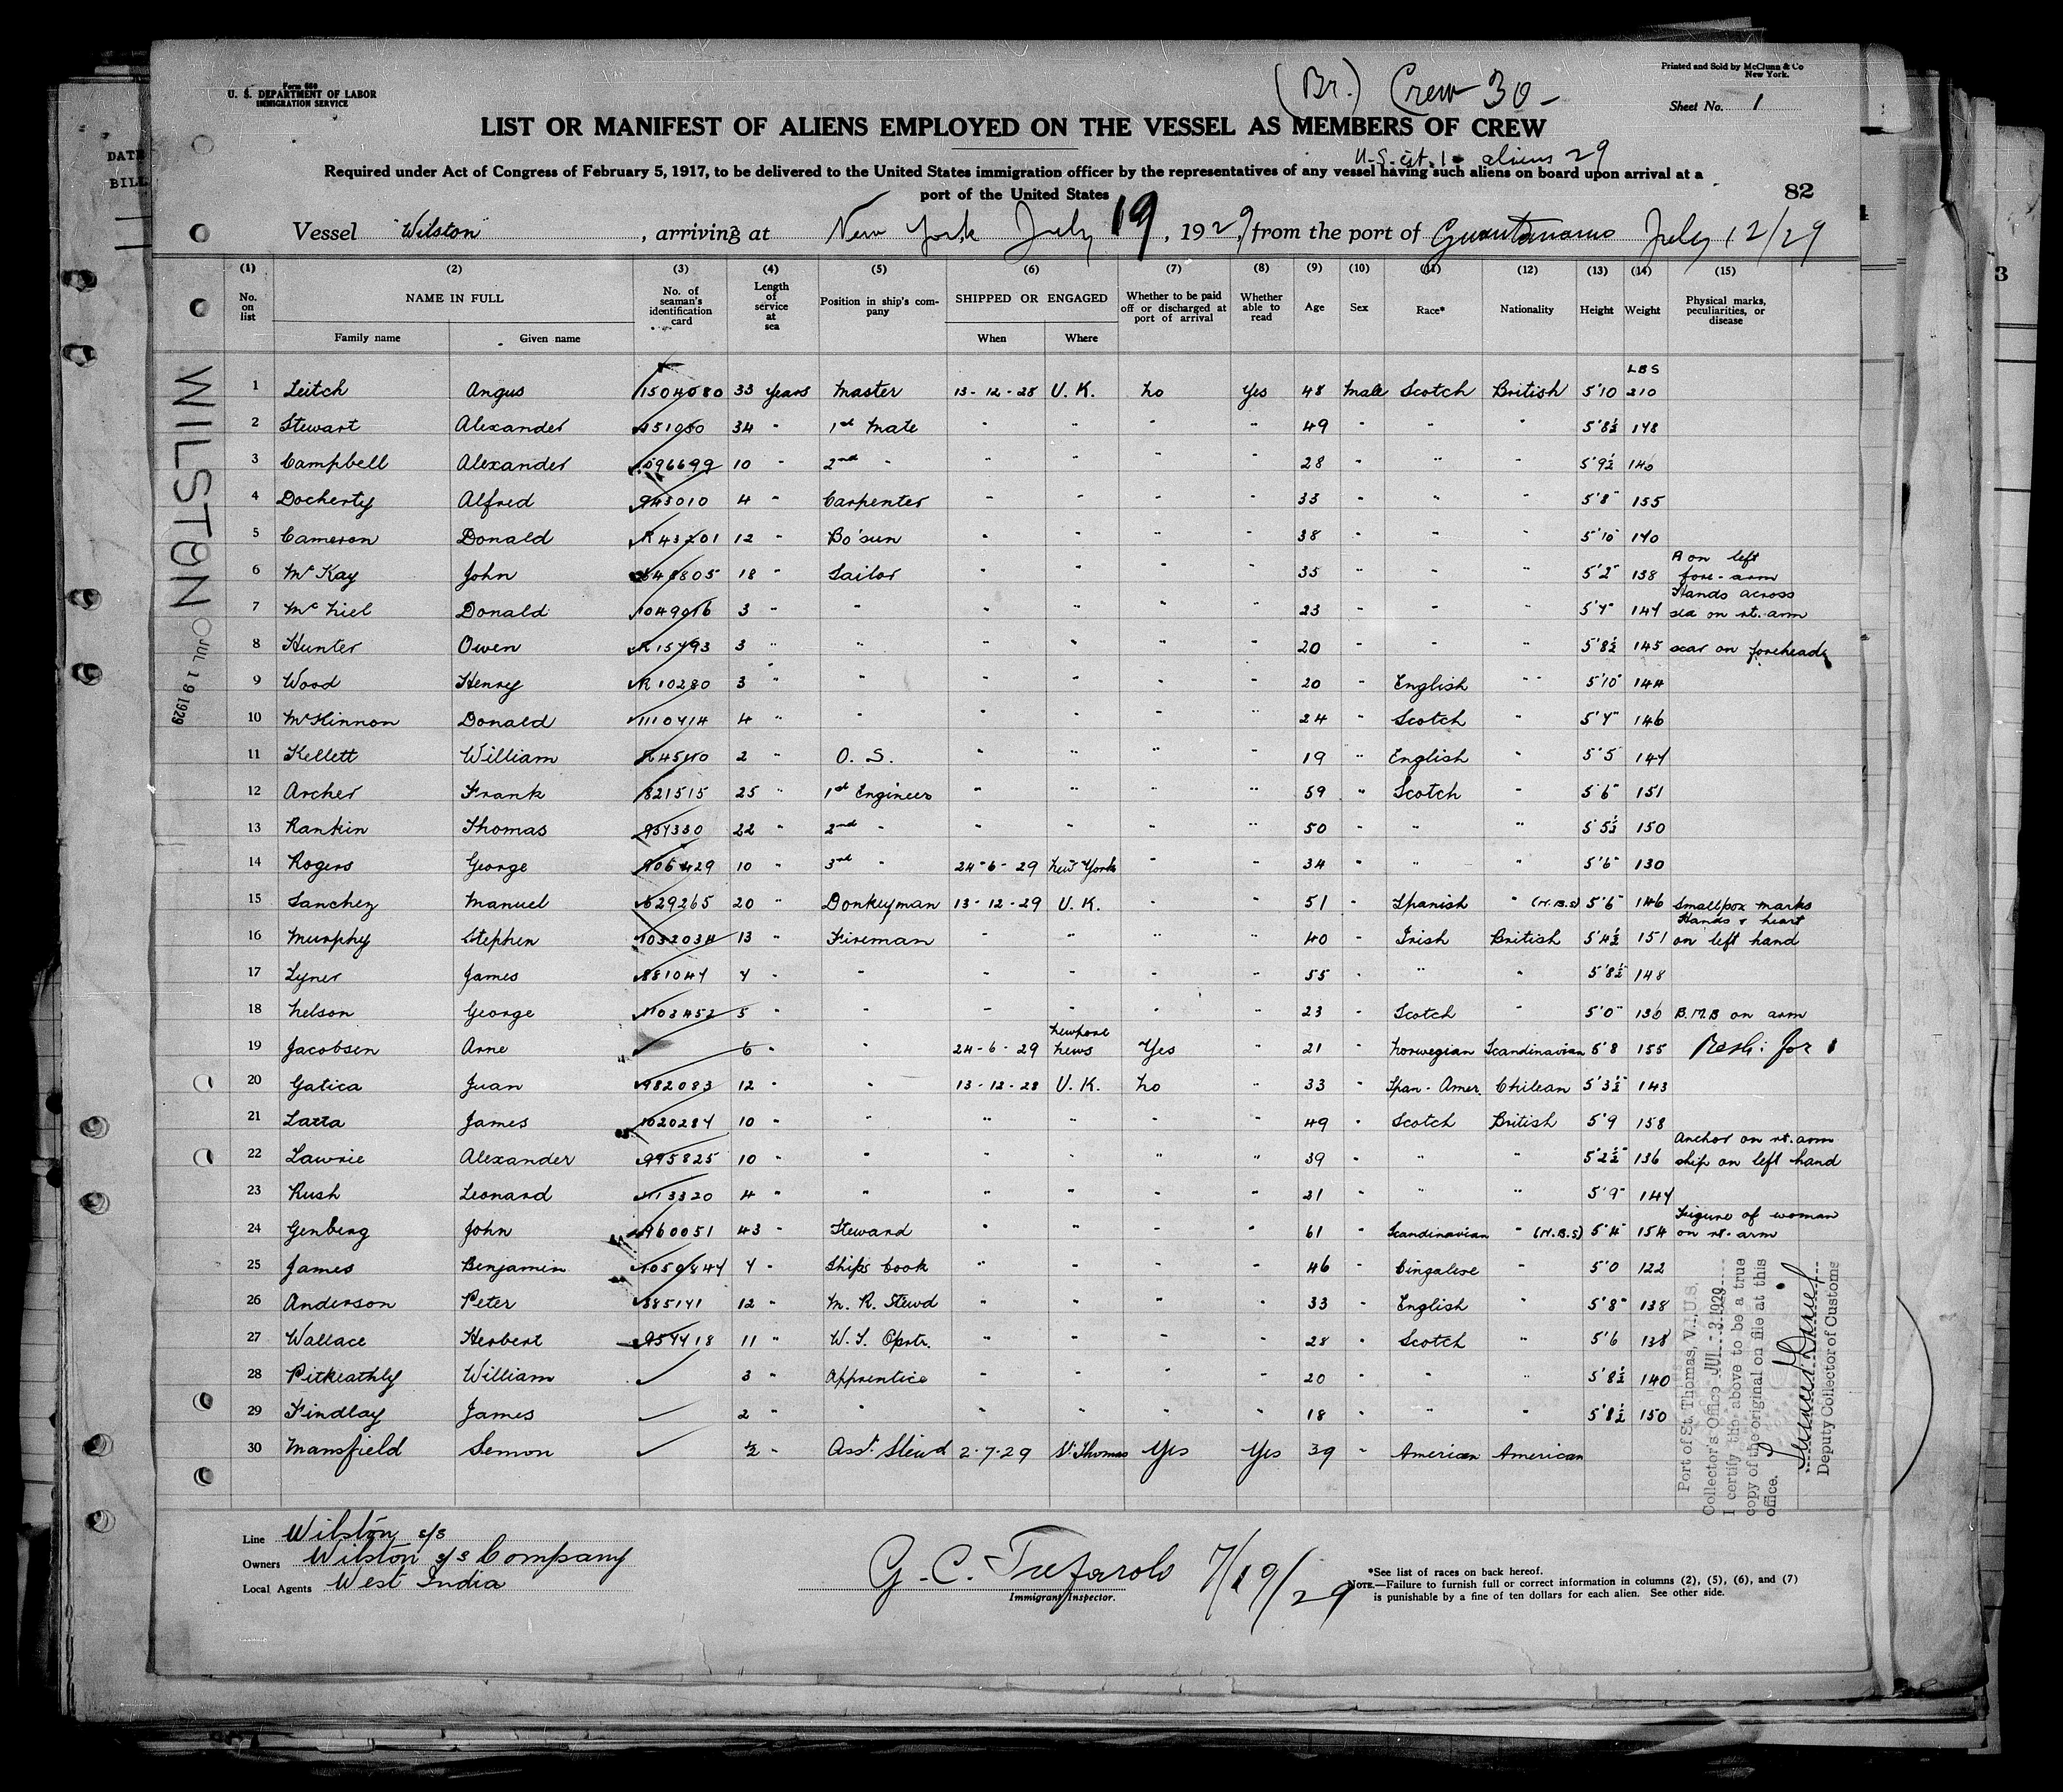 Form 680
U. S. DEPARTMENT OF LABOR
IMMIGRATION SERVICE
Printed and Sold by McClunn & Co
New York.
(Br.) Crew 30 -
Sheet No. 1
LIST OR MANIFEST OF ALIENS EMPLOYED ON THE VESSEL AS MEMBERS OF CREW
U.S. cit. 1 - aliens 29
Required under Act of Congress of February 5, 1917, to be delivered to the United States immigration officer by the representatives of any vessel having such aliens on board upon arrival at a
port of the United States
82
Vessel "Wilston" , arriving at New York July 19 , 1929, from the port of Guantanamo July 12/29
(1) (2) (3) (4) (5) (6) (7) (8) (9) (10) (11) (12) (13) (14) (15)
No. on list NAME IN FULL No. of seaman's identification card Length of service at sea Position in ship's company SHIPPED OR ENGAGED Whether to be paid off or discharged at port of arrival Whether able to read Age Sex Race* Nationality Height Weight Physical marks, peculiarities, or disease
Family name Given name When Where
LBS
1 Leitch Angus 1504080 33 Years Master 13-12-28 U. K. No Yes 48 Male Scotch British 5'10 210
2 Stewart Alexander 34 " 1st Mate " " " " 49 " " " 5'8½ 148
3 Campbell Alexander 1096699 10 " 2nd " " " " " 28 " " " 5'9½ 140
4 Docherty Alfred 943010 4 " Carpenter " " " " 33 " " " 5'8" 155
5 Cameron Donald R 43701 12 " Bo'sun " " " " 38 " " " 5'10" 140
6 McKay John 18 " Sailor " " " " 35 " " " 5'2" 138 A on left fore-arm
7 McNiel Donald 1049016 3 " " " " " " 23 " " " 5'7" 147 Hands across sea on rt. arm
8 Hunter Owen R 15793 3 " " " " " " 20 " " " 5'8½ 145 scar on forehead
9 Wood Henry R 10280 3 " " " " " " 20 " English " 5'10" 144
10 McKinnon Donald 1110714 4 " " " " " " 24 " Scotch " 5'7" 146
11 Kellett William 2 " O. S. " " " " 19 " English " 5'5 147
12 Archer Frank 821515 25 " 1st Engineer " " " " 59 " Scotch " 5'6" 151
13 Rankin Thomas 957330 22 " 2nd " " " " " 50 " " " 5'5½ 150
14 Rogers George 10 " 3rd " 24-6-29 New York " " 34 " " " 5'6" 130
15 Sanchez Manuel 629265 20 " Donkeyman 13-12-29 U. K. " " 51 " Spanish " (N.B.S) 5'6" 146 Smallpox marks
16 Murphy Stephen 1032034 13 " Fireman " " " " 40 " Irish British 5'4½ 151 Hands & heart on left hand
17 Lyner James 881047 7 " " " " " " 55 " " " 5'8½ 148
18 Nelson George 1103452 5 " " " " " " 23 " Scotch " 5'0" 130 B.M.B on arm
19 Jacobsen Arne 6 " " 24-6-29 Newport News Yes " 21 " Norwegian Scandinavian 5'8 155
20 Gatica Juan 982083 12 " " 13-12-28 U. K. No " 33 " Span-Amer. Chilean 5'3½ 143
21 Latta James 1020287 10 " " " " " " 49 " Scotch British 5'9 158
22 Lawrie Alexander 995825 10 " " " " " " 39 " " " 5'2½ 136 Anchor on rt. arm ship on left hand
23 Rush Leonard 4 " " " " " " 21 " " " 5'9" 147
24 Genberg John 960051 43 " Steward " " " " 61 " Scandinavian " (N.B.S) 5'4" 154 Figure of woman on rt. arm
25 James Benjamin 1050847 7 " Ships Cook " " " " 46 " Cingalese " 5'0 122
26 Anderson Peter 885171 12 " M. R. Stewd " " " " 33 " English " 5'8" 138
27 Wallace Herbert 957718 11 " W. T. Oprtr. " " " " 28 " Scotch " 5'6 138
28 Pitkeathly William 3 " Apprentice " " " " 20 " " " 5'8½ 140
29 Findlay James 2 " " " " " " 18 " " " 5'8½ 150
30 Mansfield Semon ½ " Asst. Stewd 2-7-29 St Thomas Yes Yes 39 " American American
WILSTON
JUL 19 1929
Port of St. Thomas, V.I.U.S.
Collector's Office JUL - 3 1929
I certify the above to be a true
copy of the original on file at this
office.
Deputy Collector of Customs
Line Wilston s/s
Owners Wilston s/s Company
Local Agents West India
G. C. 7/19/29
Immigrant Inspector.
*See list of races on back hereof.
NOTE.—Failure to furnish full or correct information in columns (2), (5), (6), and (7)
is punishable by a fine of ten dollars for each alien. See other side.
DATE
BILL
3